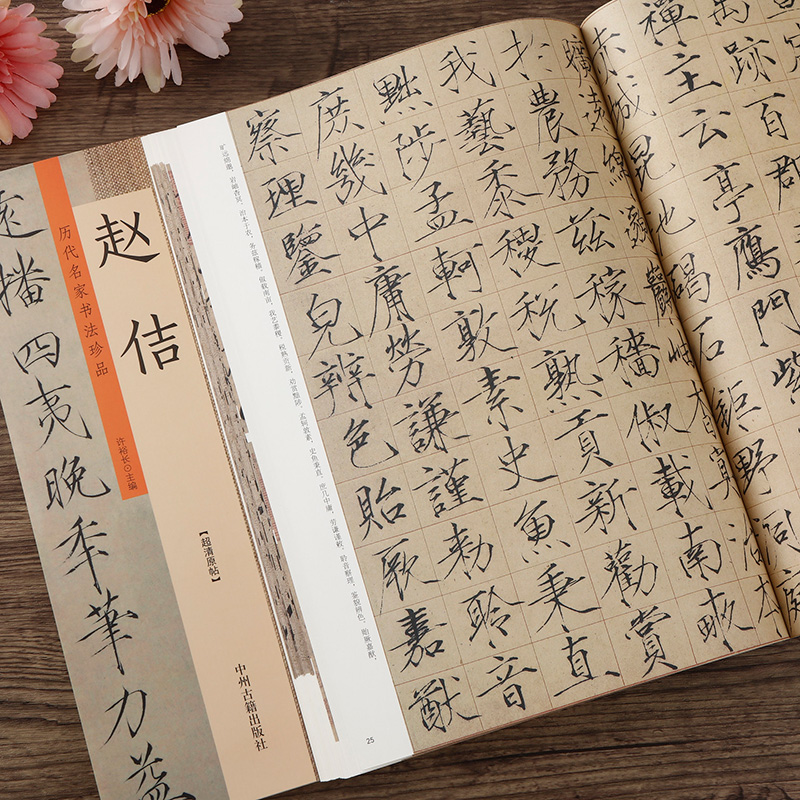 历代名家书法珍品
赵佶
许裕长⊙主编
【超清原帖】
中州古籍出版社
遠播四夷晚季華力益
禹跡百郡
禪主云亭鴈門紫
赤城昆池碣石鉅野洞庭
曠遠綿
於農務茲稼穡俶載南畝
我藝黍稷稅熟貢新勸賞
黜陟孟軻敦素史魚秉直
庶幾中庸勞謙謹勅聆音
察理鑒皃辨色貽厥嘉猷
旷远绵邈，岩岫杳冥。治本于农，务兹稼穑。俶载南亩，我艺黍稷。税熟贡新，劝赏黜陟。孟轲敦素，史鱼秉直。庶几中庸，劳谦谨敕。聆音察理，鉴貌辨色。贻厥嘉猷，
25